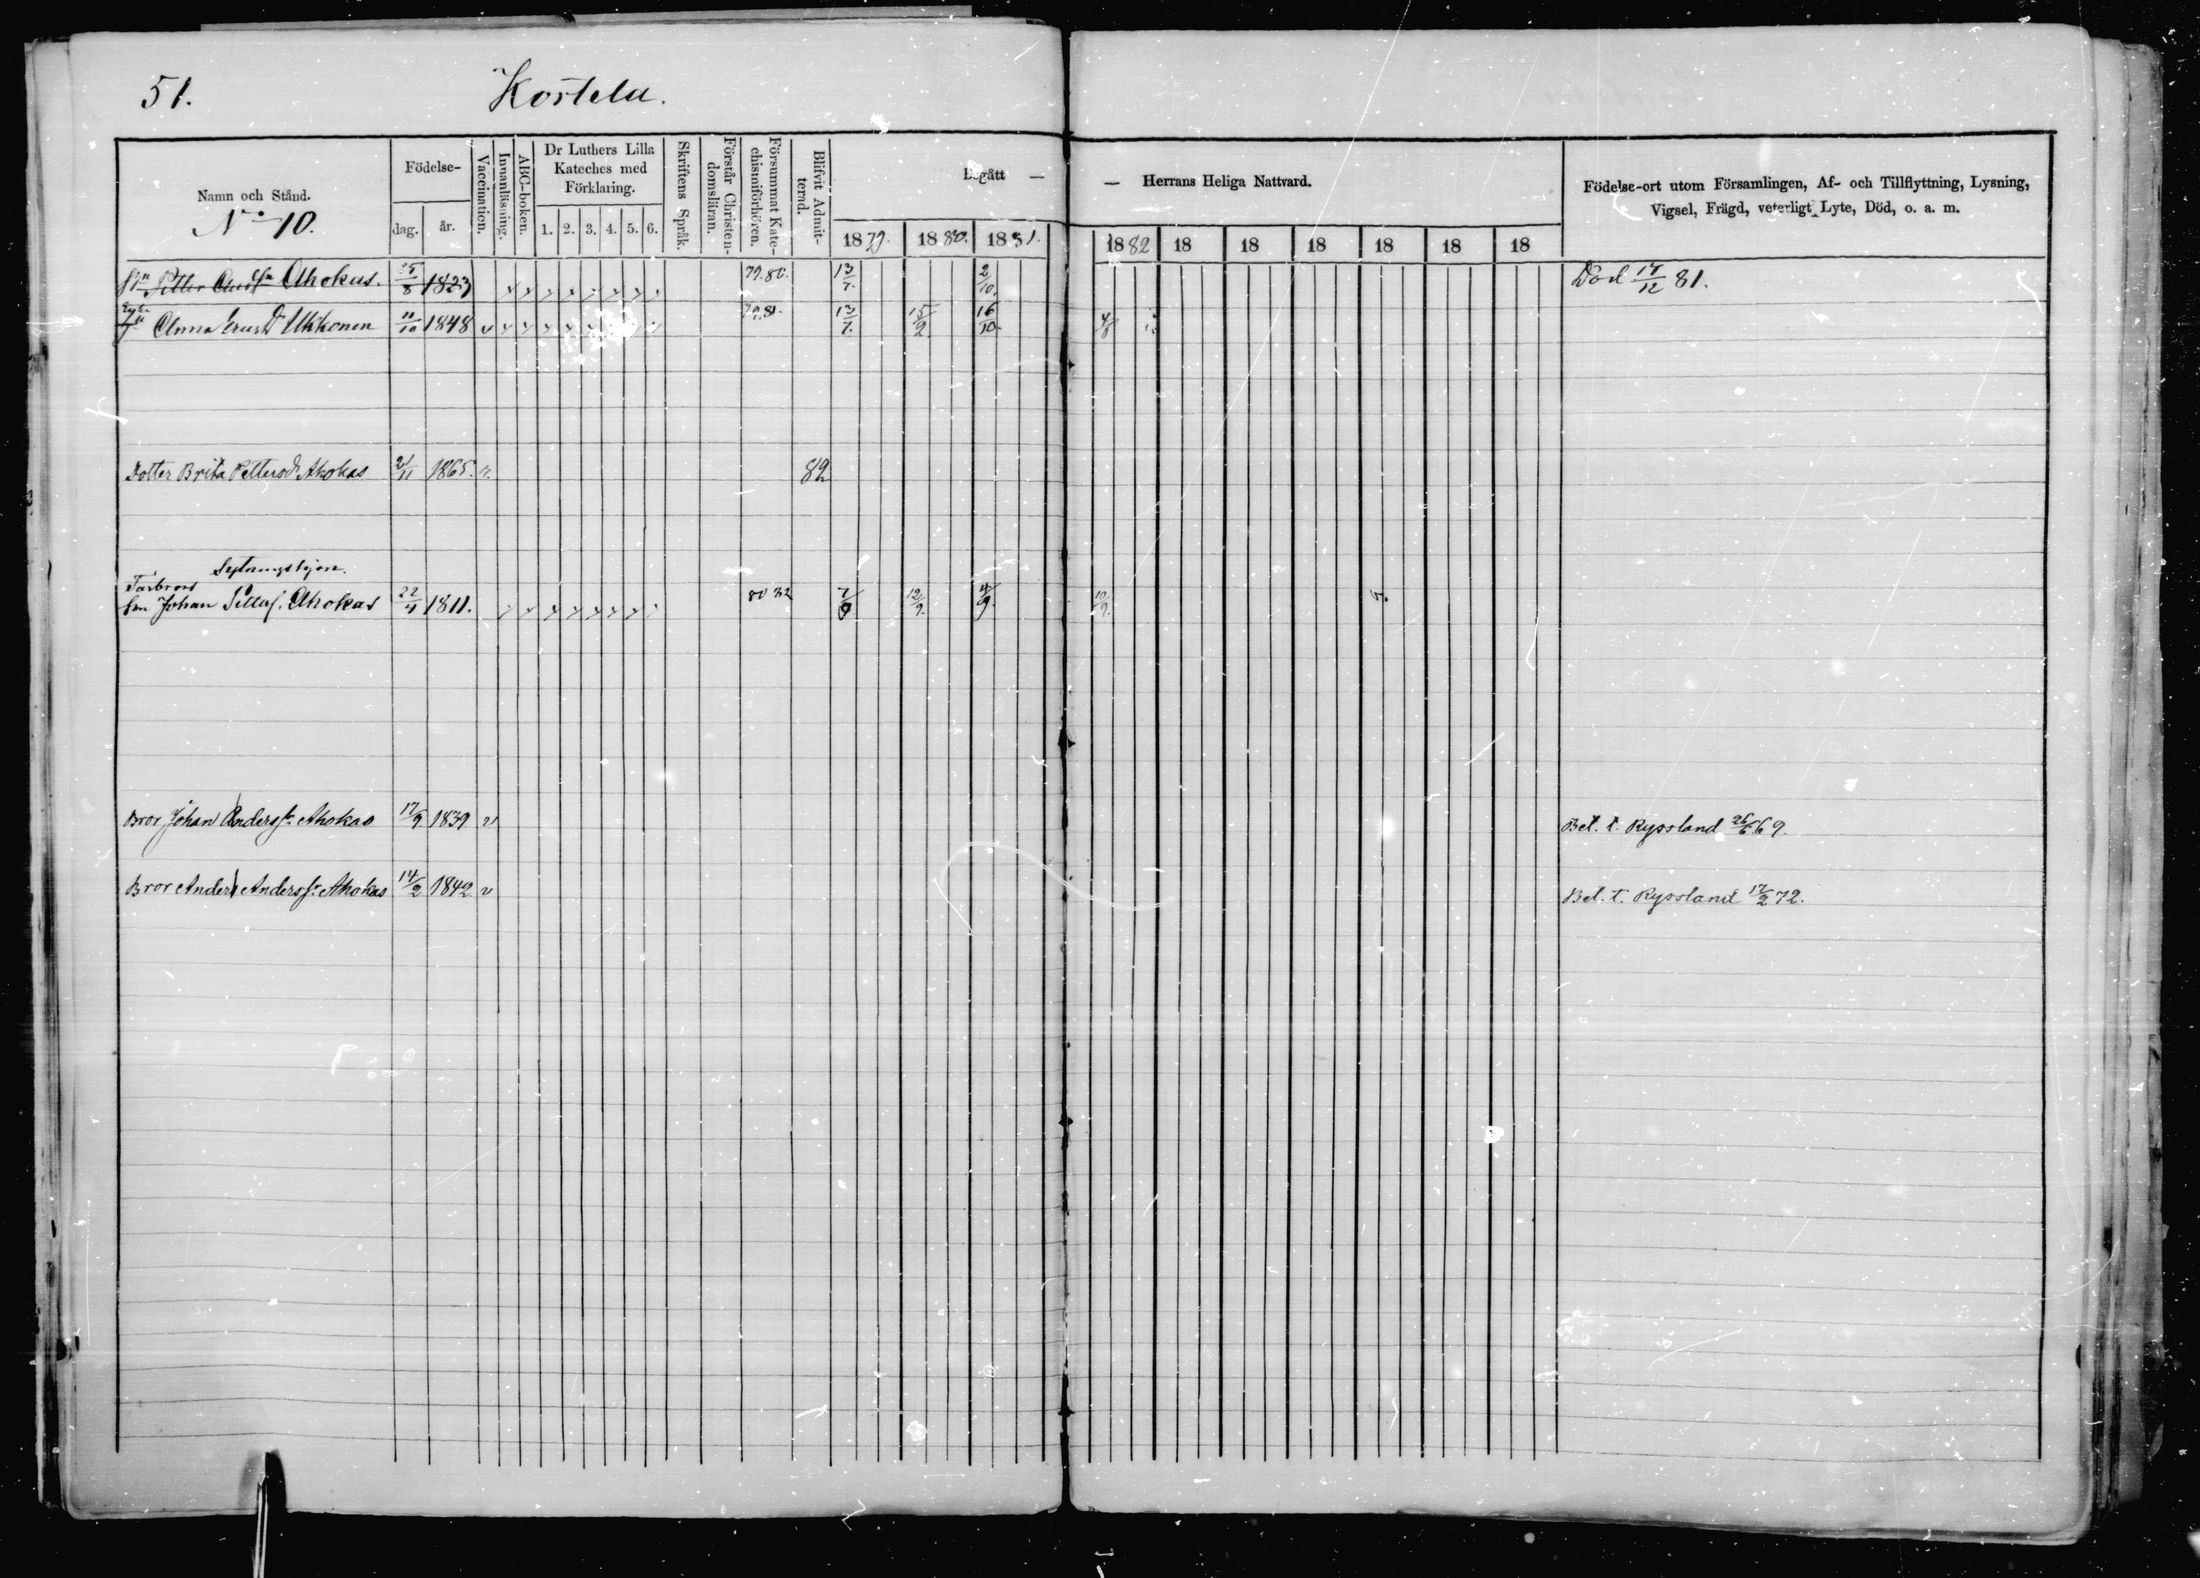 51. Kortela.
Namn och Stånd.
No 10.
Födelse-
dag. år.
Vaccination.
Innanläsning.
ABC-boken.
Dr Luthers Lilla
Kateches med
Förklaring.
1. 2. 3. 4. 5. 6.
Skriftens Språk.
Förstår Christen-
domsläran.
Försummat Kate-
chismiförhören.
Blifvit Admit-
terad.
Begått — — Herrans Heliga Nattvard.
1879. 1880. 1881. 1882 18 18 18 18 18 18
Födelse-ort utom Församlingen, Af- och Tillflyttning, Lysning,
Vigsel, Frägd, veterligt Lyte, Död, o. a. m.
Petter Ahokas. 25/8 1823 79.80. 13/7. 2/10. Död 14/12 81.
Anna Ukkonen 11/10 1848 v 79.81. 13/7. 15/2. 16/10.
Dotter Brita Pettersdr Ahokas 21/11 1865. v. 82
Sytningshjon.
Farbrors
Johan Ahokas 22/4 1811. 80 82 12/9. 10/9.
Bror Johan Anderss: Ahokas 17/9 1839 v Bet. t. Ryssland 26/6 69.
Bror Anders Anderss: Ahokas 14/2 1842 v Bet. t. Ryssland 17/2 72.